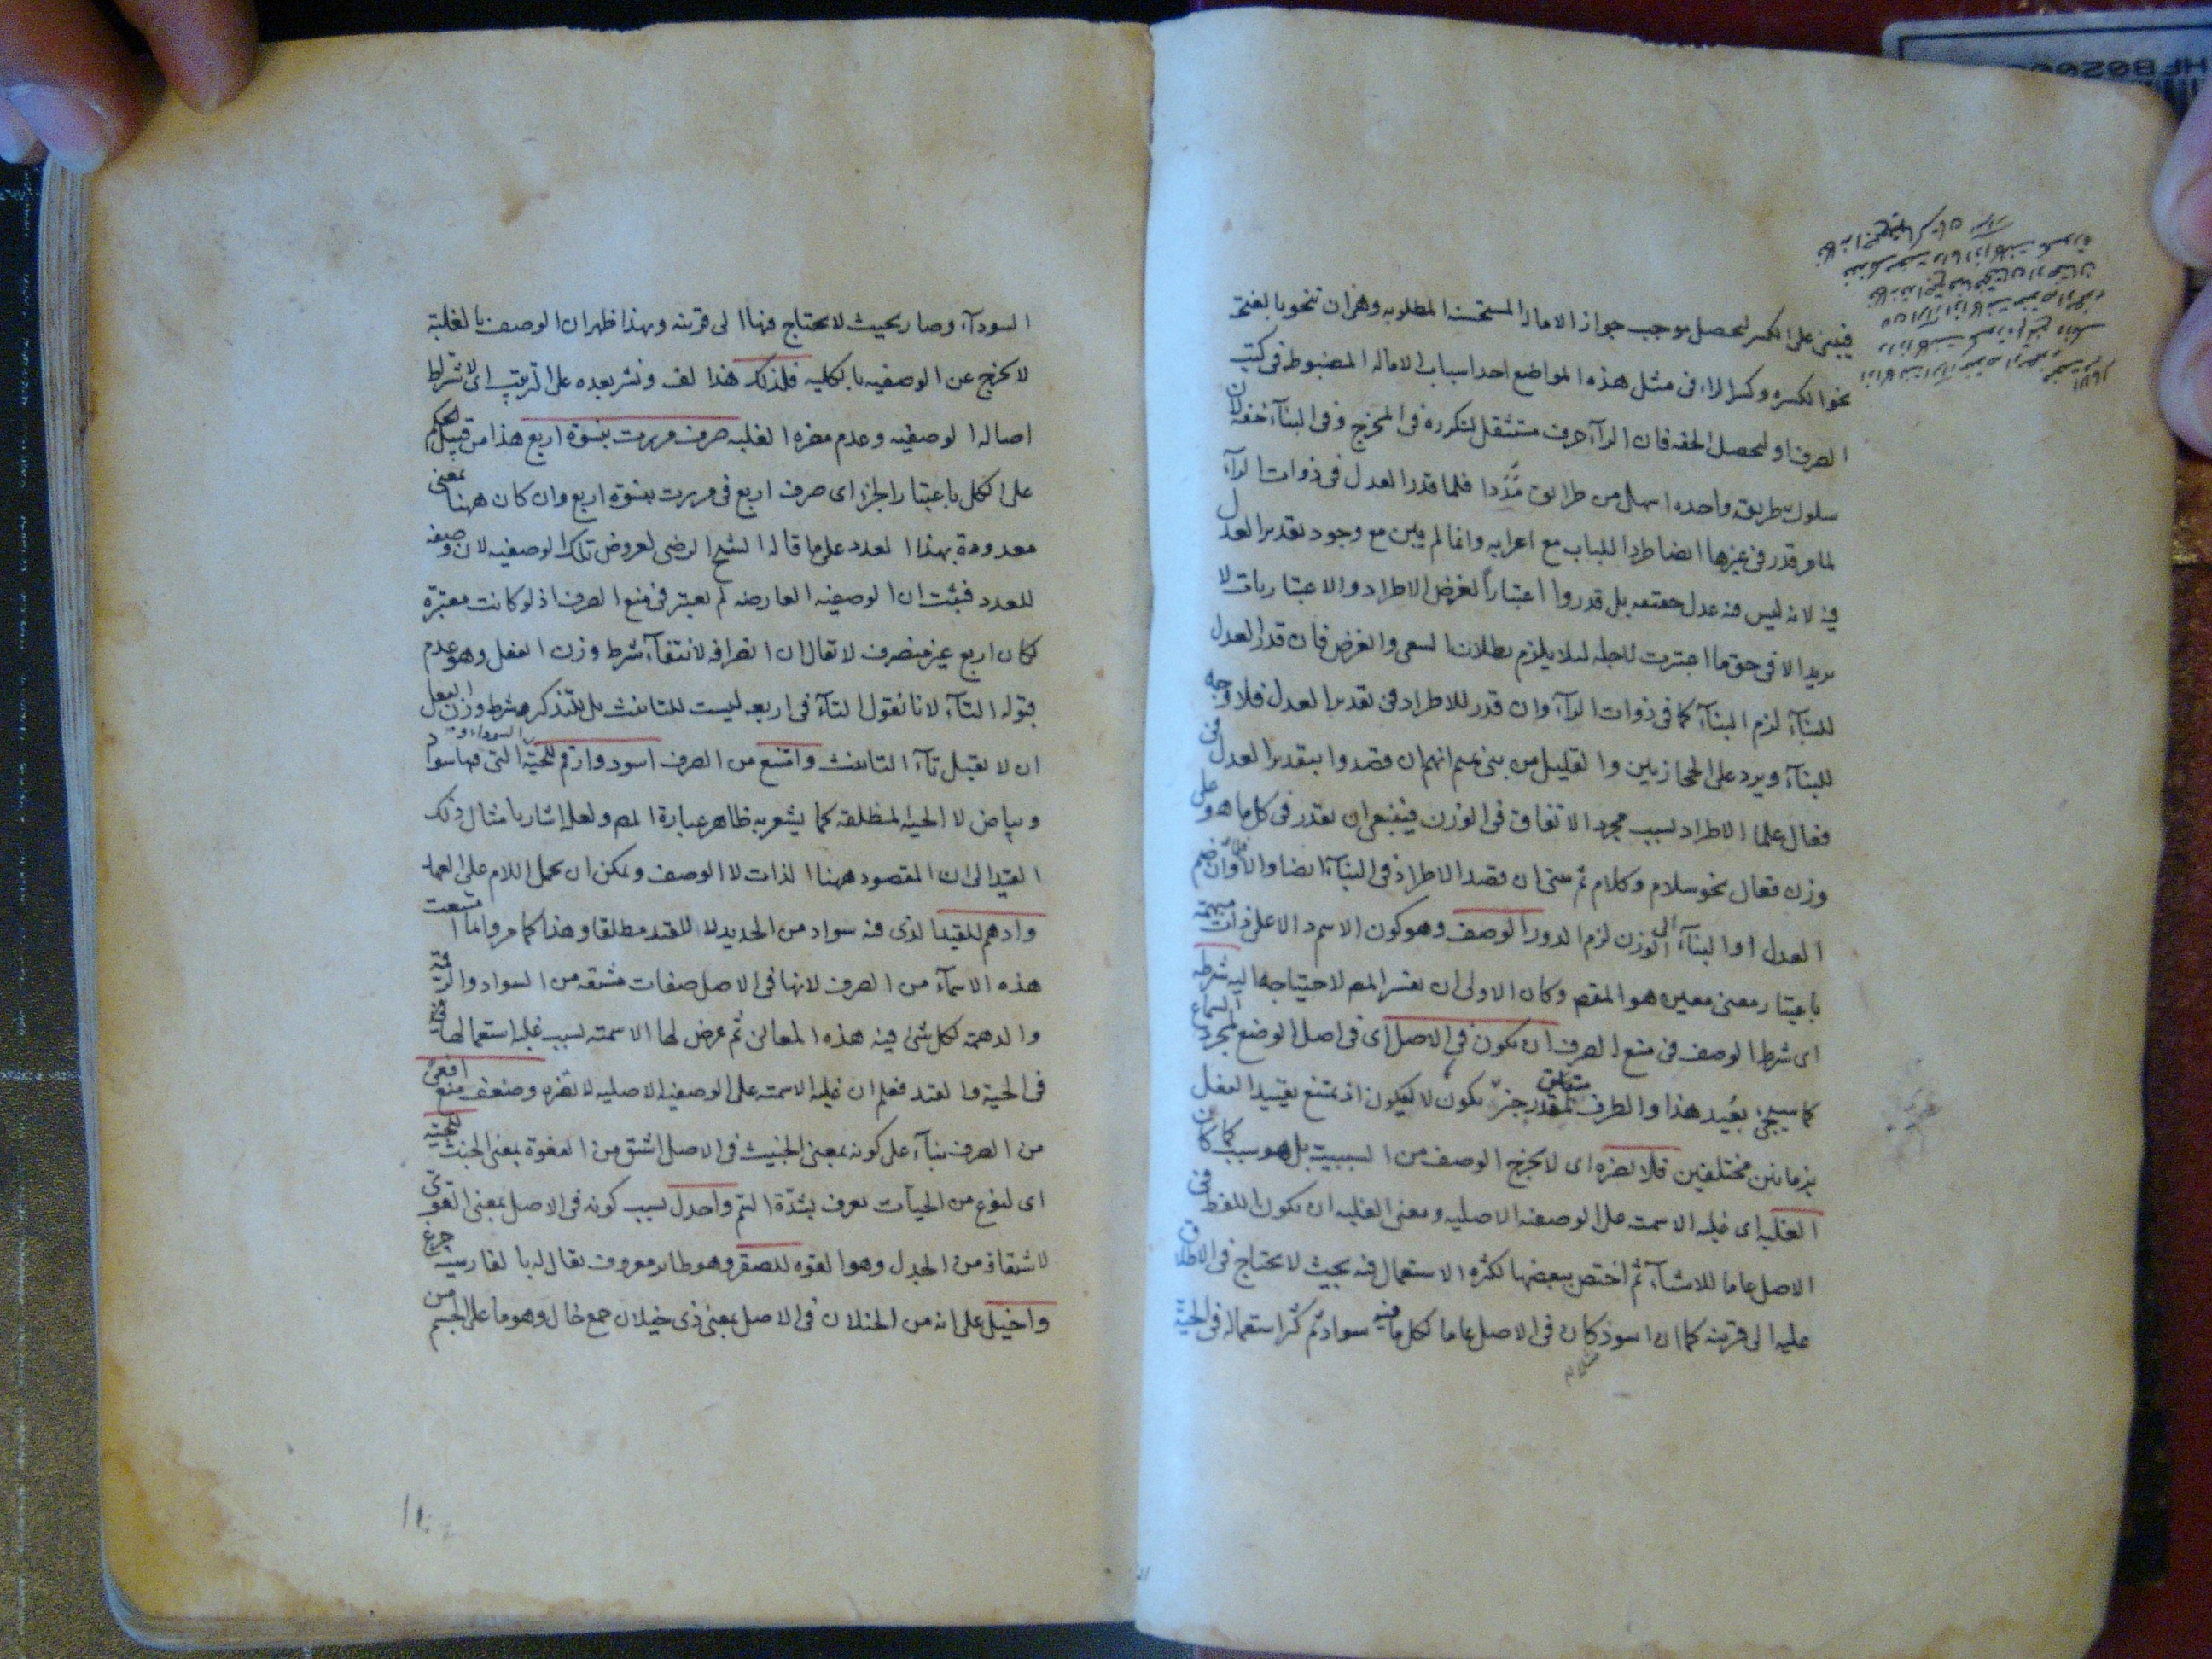 فيبنى على الكسر ليحصل موجب جواز الامالة المستحسنة المطلوبة وهى ان تنحو بالفتحة
نحو الكسرة وكسر الراء فى مثل هذه المواضع احد اسباب الامالة المضبوطة فى كتب
الصرف او ليحصل الخفة فان الرآء حرف مستثقل لتكرره فى المخرج وفى البنآء خفة لان
سلوك طريقة واحدة اسهل من طرائق فلما قدر العدل فى ذوات الرآء
لما مر قدر فى غيرها ايضا طردا للباب مع اعرابه وانما لم يبن مع وجود تقدير العدل
فيه لانه ليس فيه عدل حقيقة بل قدروا اعتباراً لغرض الاطراد والاعتباريات لا
يريد الا فى حق ما اعتبرت لاجله لئلا يلزم بطلان السعى والغرض فان قدر العدل
للبنآء لزم البنآء كما فى ذوات الرآء وان قدر للاطراد فى تقدير العدل فلا وجه
للبنآء ويرد على الحجازيين والقليل من بنى تميم انهم ان قصدوا بتقدير العدل فى
فعال علما الاطراد بسبب مجرد الاتفاق فى الوزن فينبغى ان يقدر فى كل ما هو على
وزن فعال نحو سلام وكلام ثم ان قصد الاطراد فى البنآء ايضا والا فان ضم
العدل او البنآء الى الوزن لزم الدور الوصف وهو كون الاسم دالا على ذات مبهمة
باعتبار معنى معين هو المقصود وكان الاولى ان يفسر المص لاحتياجه اليه شرطه
اى شرط الوصف فى منع الصرف ان يكون فى الاصل اى فى اصل الوضع لمجرد السماع
كما سيجئ بعيد هذا والظرف متعلق بمقدر خبر يكون لا ليكون اذ يمتنع تقييد الفعل
بزمانين مختلفين فلا تضره اى لا يخرج الوصف من السببية بل هو سبب كما كان
الغلبة اى غلبة الاسمية على الوصفية الاصلية ومعنى الغلبة ان يكون اللفظ فى
الاصل عاما للاشيآء ثم اختص ببعضها لكثرة الاستعمال فيه بحيث لا يحتاج فى الاطلاق
عليه الى قرينة كما ان اسود كان فى الاصل عاما لكل ما فيه سواد ثم كثر استعماله فى الحية
السودآء وصار بحيث لا يحتاج فيها الى قرينة وبهذا ظهر ان الوصف بالغلبة
لا يخرج عن الوصفية بالكلية فلذلك هذا لف ونشر بعده على الترتيب اى لاشتراط
اصالة الوصفية وعدم مضرة الغلبة صرف مررت بنسوة اربع هذا من قبيل الحكم
على الكل باعتبار الجزء اى صرف اربع فى مررت بنسوة اربع وان كان ههنا بمعنى
معدودة بهذا العدد على ما قاله الشيخ الرضى لعروض تلك الوصفية لان وضعه
للعدد فثبت ان الوصفية العارضة لم تعتبر فى منع الصرف اذ لو كانت معتبرة
لكان اربع غير منصرف لا يقال ان انصرافه لانتفآء شرط وزن الفعل وهو عدم
قبوله التآء لانا نقول التآء فى اربعة ليست للتانيث بل للتذكير وشرط وزن الفعل
ان لا يقبل تآء التانيث وامتنع من الصرف اسود وارقم للحية التى فيها سواد
وبياض لا الحية المطلقة كما يشعر به ظاهر عبارة المص ولعله اشار بامثال ذلك
القيد الى ان المقصود ههنا الذات لا الوصف ويمكن ان يحمل اللام على العهد
وادهم للقيد الذى فيه سواد من الحديد لا للقيد مطلقا وهذا كما مر وانما امتنعت
هذه الاسمآء من الصرف لانها فى الاصل صفات مشتقة من السواد والرقمة
والدهمة لكل شئ فيه هذه المعانى ثم عرض لها الاسمية بسبب غلبة استعمالها
فى الحية والقيد فعلم ان غلبة الاسمية على الوصفية الاصلية لا تضره وضعف منع افعى
من الصرف بنآء على كونه بمعنى الخبيث فى الاصل اشتق من الفعوة بمعنى الخبث للحية
اى لنوع من الحيات تعرف بشدة السم واجدل بسبب كونه فى الاصل بمعنى القوى
لاشتقاقه من الجدل وهو القوة للصقر وهو طائر معروف يقال له بالفارسية چرغ
واخيل على انه من الخيلان فى الاصل بمعنى ذى خيلان جمع خال وهو ما على الجسم من